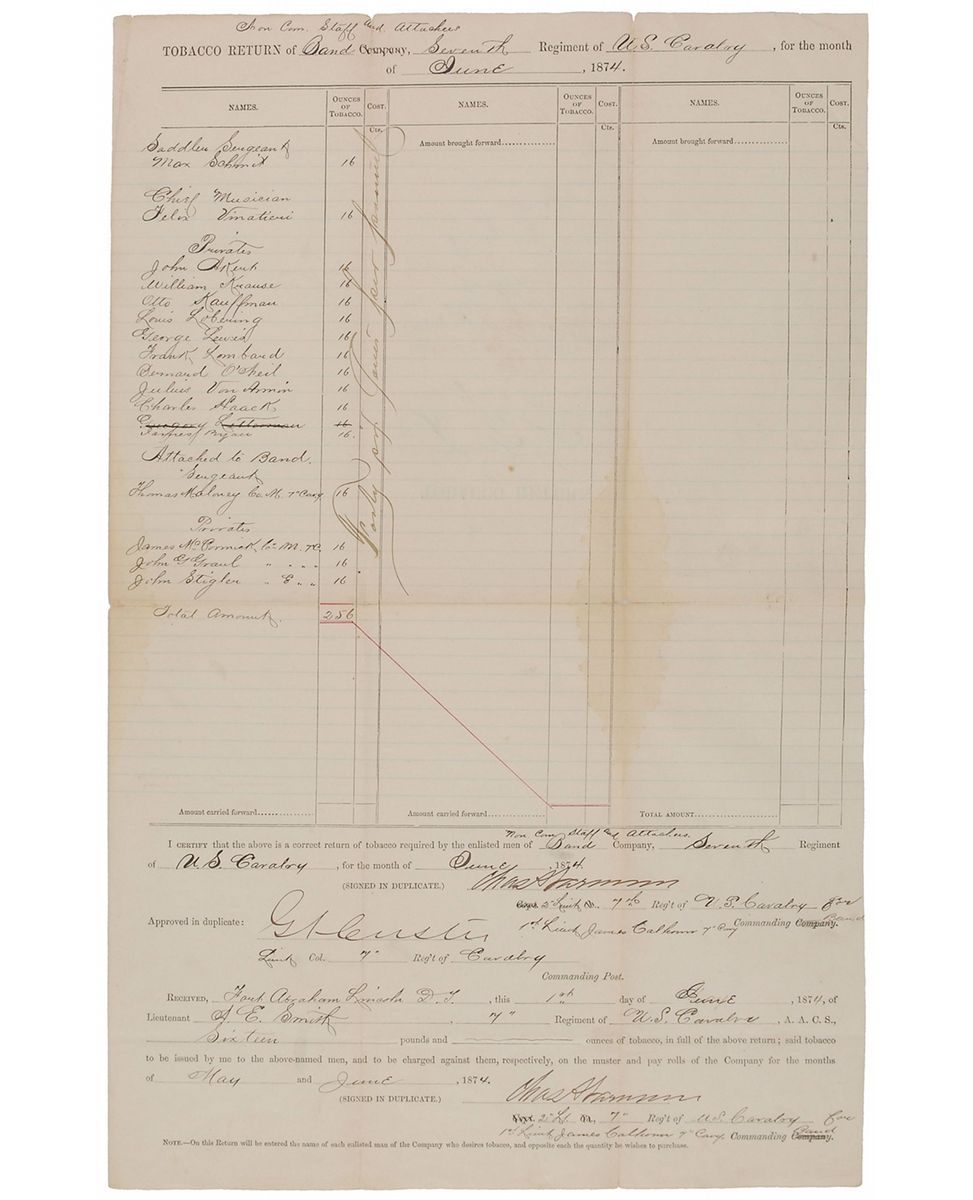 Non Com. Staff and Attaches
TOBACCO RETURN of Band Company, Seventh Regiment of U.S. Cavalry, for the month
of June, 1874.
NAMES. OUNCES OF TOBACCO. COST. NAMES. OUNCES OF TOBACCO. COST. NAMES. OUNCES OF TOBACCO. COST.
Cts. Cts. Cts.
Amount brought forward Amount brought forward
Saddler Sergeant
Max Schmit 16
Chief Musician
Felix Vinatieri 16
Privates
John 16
William Krause 16
Otto Kauffman 16
Louis Lobering 16
George Lewis 16
Frank Lombard 16
Bernard O'Neil 16
Julius Von Arnim 16
Charles Haack 16
Gregory Letterman 16
James Bryan 16.
Attached to Band.
Sergeant
Thomas Maloney Co. M. 7" Cavy. 16
Privates
James McCormick, Co. M. 7" C. 16
John G Graul " " " " 16
John Stigler " E " " 16
Total Amount. 256
Forty per pound
Amount carried forward Amount carried forward TOTAL AMOUNT
Non Com Staff and Attaches
I CERTIFY that the above is a correct return of tobacco required by the enlisted men of Band Company, Seventh Regiment
of U.S. Cavalry, for the month of June, 1874.
(SIGNED IN DUPLICATE.) Chas A Varnum
Capt. 2d Lieut Co. 7th Reg't of U.S. Cavalry For
1st Lieut James Calhoun 7" Cavy Commanding Company. Band
Approved in duplicate: G A Custer
Lieut Col. 7" Reg't of Cavalry
Commanding Post.
RECEIVED, Fort Abraham Lincoln D.T., this 1st day of June, 1874, of
Lieutenant A. E. Smith, 7" Regiment of U.S. Cavalry, A. A. C. S.,
Sixteen pounds and ounces of tobacco, in full of the above return; said tobacco
to be issued by me to the above-named men, and to be charged against them, respectively, on the muster and pay rolls of the Company for the months
of May and June, 1874.
(SIGNED IN DUPLICATE.) Chas A Varnum
Capt. 2d Lt. Co. 7" Reg't of U.S. Cavalry For
1st Lieut James Calhoun 7" Cavy. Commanding Company. Band
NOTE.—On this Return will be entered the name of each enlisted man of the Company who desires tobacco, and opposite each the quantity he wishes to purchase.